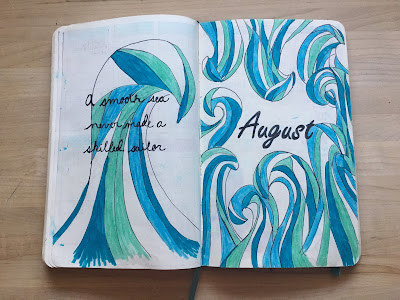 A smooth sea
never made a
skilled sailor
August